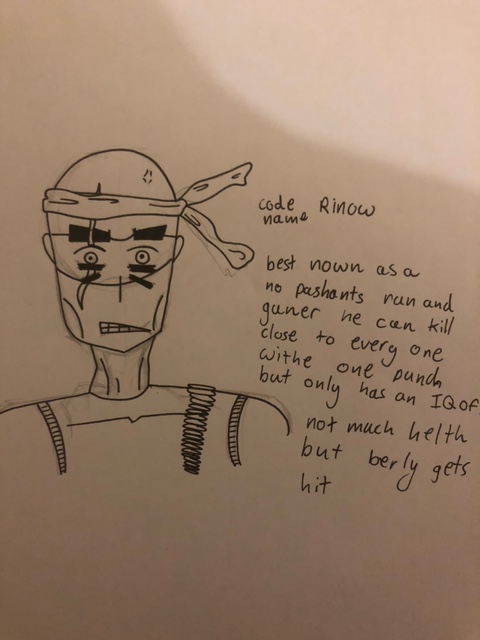 code
name Rinow
best nown as a
no pashants run and
guner he can kill
close to every one
withe one punch
but only has an IQ of
not much helth
but berly gets
hit